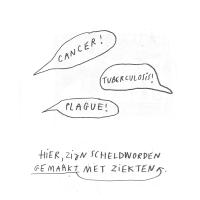 CANCER!
TUBERCULOSIS!
PLAGUE!
HIER, ZIJN SCHELDWORDEN
GEMARKT MET ZIEKTEN.